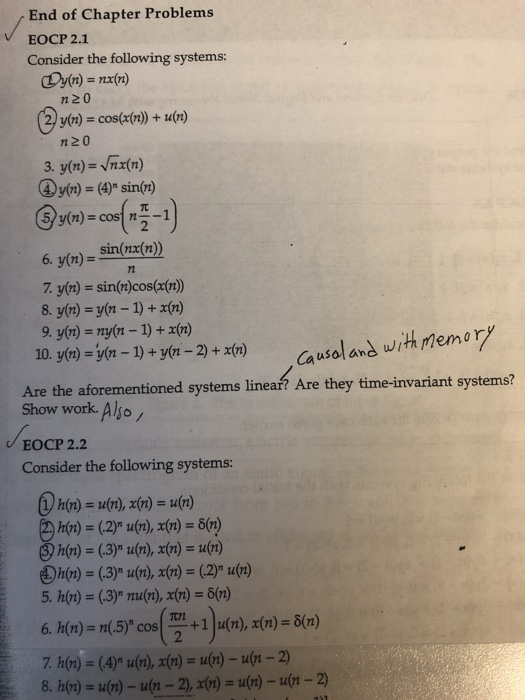 End of Chapter Problems
✓ EOCP 2.1
Consider the following systems:
1. y(n) = nx(n)
n ≥ 0
2. y(n) = cos(x(n)) + u(n)
n ≥ 0
3. y(n) = √nx(n)
4. y(n) = (4)ⁿ sin(n)
5. y(n) = cos(n π/2 − 1)
6. y(n) = sin(nx(n))/n
7. y(n) = sin(n)cos(x(n))
8. y(n) = y(n − 1) + x(n)
9. y(n) = ny(n − 1) + x(n)
10. y(n) = y(n − 1) + y(n − 2) + x(n)
causal and with memory
Are the aforementioned systems linear? Are they time-invariant systems?
Show work. Also,
✓ EOCP 2.2
Consider the following systems:
1. h(n) = u(n), x(n) = u(n)
2. h(n) = (.2)ⁿ u(n), x(n) = δ(n)
3. h(n) = (.3)ⁿ u(n), x(n) = u(n)
4. h(n) = (.3)ⁿ u(n), x(n) = (.2)ⁿ u(n)
5. h(n) = (.3)ⁿ nu(n), x(n) = δ(n)
6. h(n) = n(.5)ⁿ cos(πn/2 + 1)u(n), x(n) = δ(n)
7. h(n) = (.4)ⁿ u(n), x(n) = u(n) − u(n − 2)
8. h(n) = u(n) − u(n − 2), x(n) = u(n) − u(n − 2)